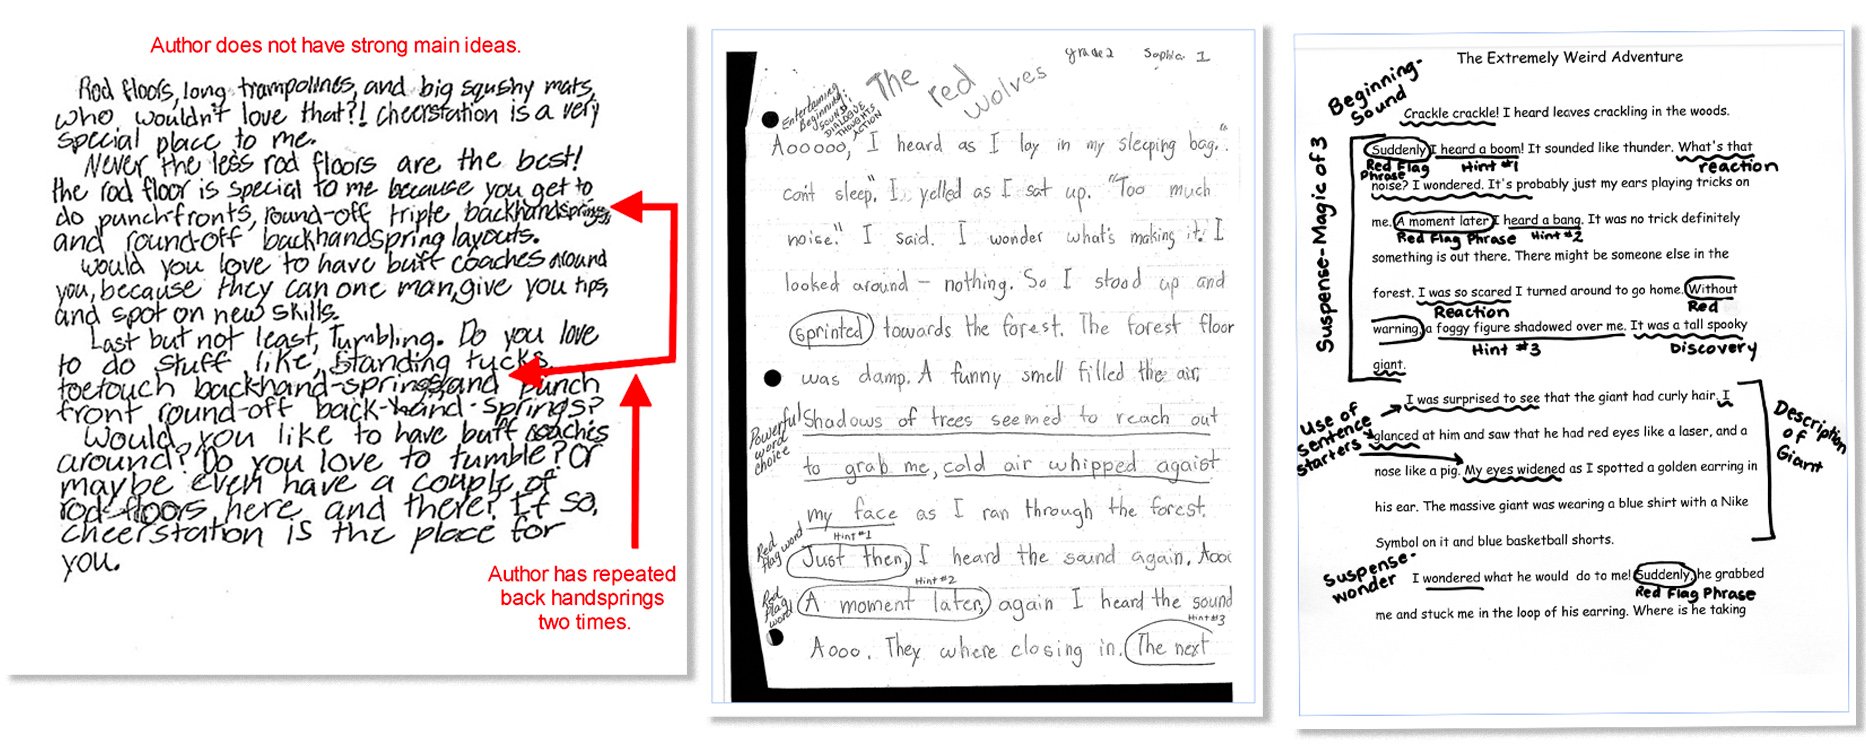 Author does not have strong main ideas.
Rod floors, long trampolines, and big squshy mats,
who wouldn't love that?! Cheerstation is a very
special place to me.
Never the less rod floors are the best!
the rod floor is special to me because you get to
do punch-fronts, round-off triple backhandsprings,
and round-off backhandspring layouts.
Would you love to have buff coaches around
you, because they can one man, give you tips,
and spot on new skills.
Last but not least, Tumbling. Do you love
to do stuff like, Standing tucks,
toetouch backhand-springs, and punch
front round-off back-hand-springs?
Would you like to have buff coaches
around? Do you love to tumble? Or
maybe even have a couple of
rod-floors here and there? If so,
cheerstation is the place for
you.
Author has repeated
back handsprings
two times.
grade 2 Sophia 1
The red wolves
Entertaining
Beginning:
SOUND
DIALOGUE
THOUGHTS
ACTION
Aooooo, I heard as I lay in my sleeping bag. "
can't sleep." I yelled as I sat up. "Too much
noise." I said. I wonder what's making it. I
looked around – nothing. So I stood up and
sprinted towards the forest. The forest floor
was damp. A funny smell filled the air.
Powerful
word
choice
Shadows of trees seemed to reach out
to grab me, cold air whipped agaist
my face as I ran through the forest.
Red
flag word
Hint #1
Just then, I heard the sound again. Aooo
Hint #2
Red
flag
word
A moment later, again I heard the sound
Hint #3
Aooo. They where closing in. The next
The Extremely Weird Adventure
Beginning-
Sound
Crackle crackle! I heard leaves crackling in the woods.
Suspense-Magic of 3
Suddenly I heard a boom! It sounded like thunder. What's that
Red Flag Phrase Hint #1 reaction
noise? I wondered. It's probably just my ears playing tricks on
me. A moment later I heard a bang. It was no trick definitely
Red Flag Phrase Hint #2
something is out there. There might be someone else in the
forest. I was so scared I turned around to go home. Without
Reaction Red
warning, a foggy figure shadowed over me. It was a tall spooky
Hint #3 Discovery
giant.
Use of
sentence
starters
I was surprised to see that the giant had curly hair. I
glanced at him and saw that he had red eyes like a laser, and a
nose like a pig. My eyes widened as I spotted a golden earring in
his ear. The massive giant was wearing a blue shirt with a Nike
Symbol on it and blue basketball shorts.
Description
of
Giant
Suspense-
wonder
I wondered what he would do to me! Suddenly, he grabbed
Red Flag Phrase
me and stuck me in the loop of his earring. Where is he taking